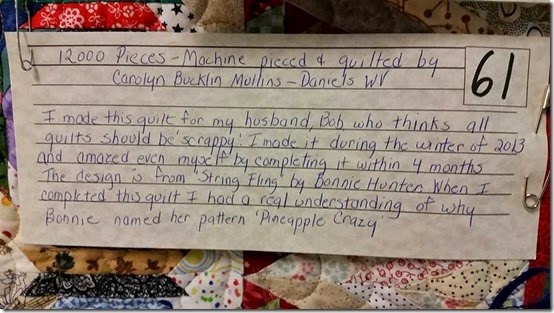 12,000 Pieces - Machine pieced & quilted by
Carolyn Bucklin Mullins - Daniels WV
61
I made this quilt for my husband, Bob, who thinks all
quilts should be 'scrappy'. I made it during the winter of 2013
and amazed even myself by completing it within 4 months
The design is from 'String Fling' by Bonnie Hunter. When I
completed this quilt I had a real understanding of why
Bonnie named her pattern 'Pineapple Crazy'